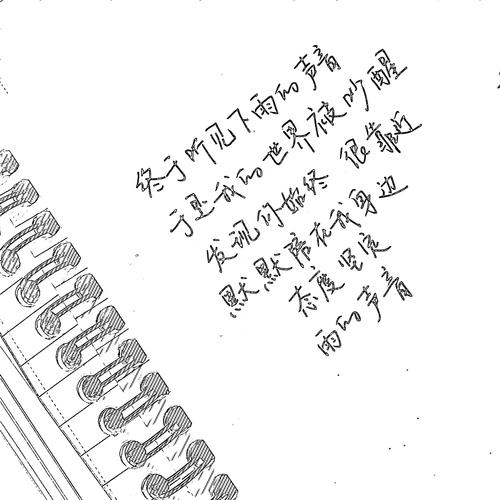 终于听见下雨的声音
于是我的世界被吵醒
发现你始终 很靠近
默默陪在我身边
态度坚定
雨的声音